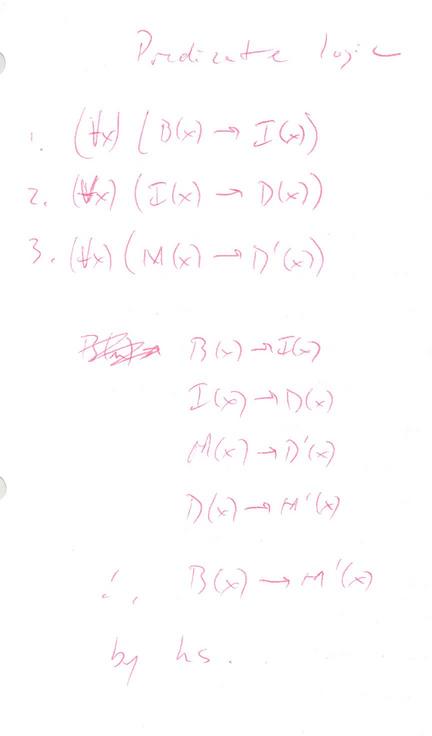 Predicate logic
1. (∀x) (B(x) → I(x))
2. (∀x) (I(x) → D(x))
3. (∀x) (M(x) → D'(x))
B(x) → I(x)
I(x) → D(x)
M(x) → D'(x)
D(x) → M'(x)
∴ B(x) → M'(x)
by hs.